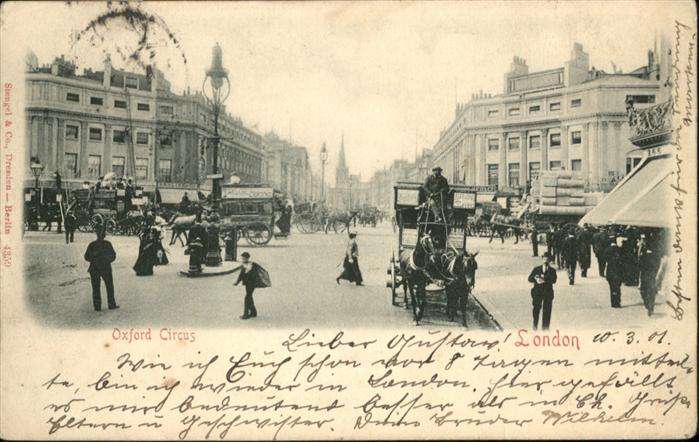 Stengel & Co., Dresden – Berlin 4350
Oxford Circus
London
Lieber Gustav! 10. 3. 01.
Wie ich Euch schon vor 8 Tagen mitteil-
te, bin ich wieder in London. hier gefällt
es mir bedeutend besser als in Ch. Grüße
Eltern u Geschwister. Deine Bruder Wilhelm.
Besten dank für